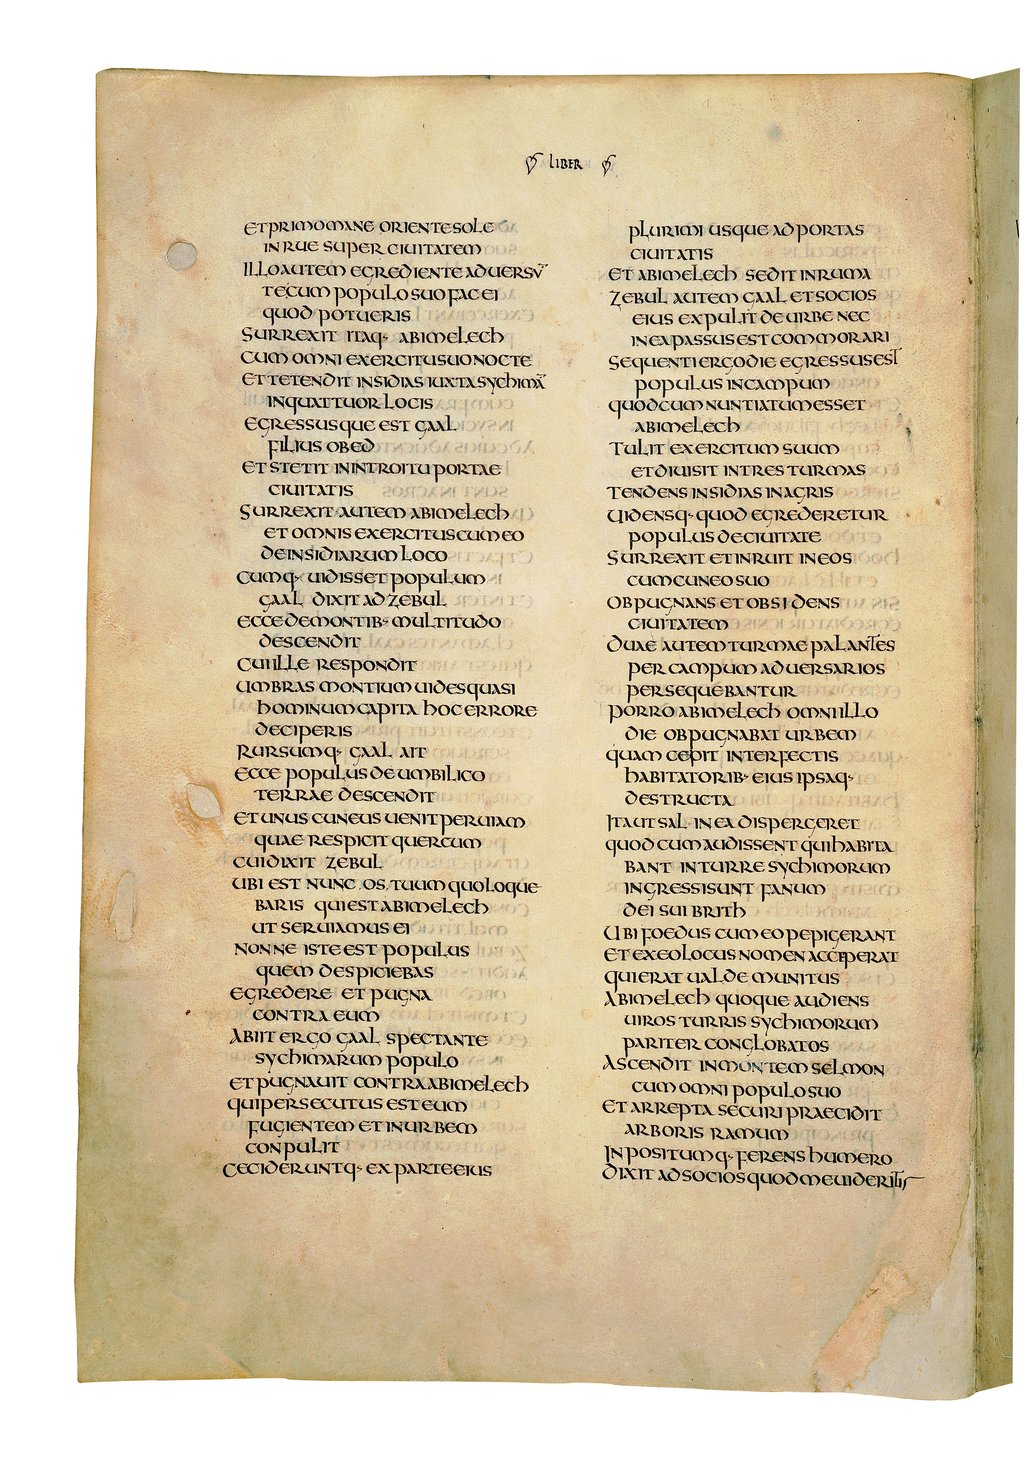 LIBER
ET PRIMO MANE ORIENTE SOLE
INRUE SUPER CIUITATEM
ILLO AUTEM EGREDIENTE ADUERSV̄
TECUM POPULO SUO FAC EI
QUOD POTUERIS
SURREXIT ITAQ· ABIMELECH
CUM OMNI EXERCITU SUO NOCTE
ET TETENDIT INSIDIAS IUXTA SYCHIMĀ
IN QUATTUOR LOCIS
EGRESSUSQUE EST GAAL
FILIUS OBED
ET STETIT IN INTROITU PORTAE
CIUITATIS
SURREXIT AUTEM ABIMELECH
ET OMNIS EXERCITUS CUM EO
DE INSIDIARUM LOCO
CUMQ· UIDISSET POPULUM
GAAL DIXIT AD ZEBUL
ECCE DE MONTIB· MULTITUDO
DESCENDIT
CUI ILLE RESPONDIT
UMBRAS MONTIUM UIDES QUASI
HOMINUM CAPITA HOC ERRORE
DECIPERIS
RURSUMQ· GAAL AIT
ECCE POPULUS DE UMBILICO
TERRAE DESCENDIT
ET UNUS CUNEUS UENIT PER UIAM
QUAE RESPICIT QUERCUM
CUI DIXIT ZEBUL
UBI EST NUNC OS TUUM QUO LOQUE
BARIS QUI EST ABIMELECH
UT SERUIAMUS EI
NONNE ISTE EST POPULUS
QUEM DESPICIEBAS
EGREDERE ET PUGNA
CONTRA EUM
ABIIT ERGO GAAL SPECTANTE
SYCHIMARUM POPULO
ET PUGNAUIT CONTRA ABIMELECH
QUI PERSECUTUS EST EUM
FUGIENTEM ET IN URBEM
CONPULIT
CECIDERUNTQ· EX PARTE EIUS
PLURIMI USQUE AD PORTAS
CIUITATIS
ET ABIMELECH SEDIT IN RUMA
ZEBUL AUTEM GAAL ET SOCIOS
EIUS EXPULIT DE URBE NEC
IN EA PASSUS EST COMMORARI
SEQUENTI ERGO DIE EGRESSUS EST
POPULUS IN CAMPUM
QUOD CUM NUNTIATUM ESSET
ABIMELECH
TULIT EXERCITUM SUUM
ET DIUISIT IN TRES TURMAS
TENDENS INSIDIAS IN AGRIS
UIDENSQ· QUOD EGREDERETUR
POPULUS DE CIUITATE
SURREXIT ET INRUIT IN EOS
CUM CUNEO SUO
OBPUGNANS ET OBSIDENS
CIUITATEM
DUAE AUTEM TURMAE PALANTES
PER CAMPUM ADUERSARIOS
PERSEQUEBANTUR
PORRO ABIMELECH OMNI ILLO
DIE OBPUGNABAT URBEM
QUAM CEPIT INTERFECTIS
HABITATORIB· EIUS IPSAQ·
DESTRUCTA
ITA UT SAL IN EA DISPERGERET
QUOD CUM AUDISSENT QUI HABITA
BANT IN TURRE SYCHIMORUM
INGRESSI SUNT FANUM
DEI SUI BRITH
UBI FOEDUS CUM EO PEPIGERANT
ET EX EO LOCUS NOMEN ACCEPERAT
QUI ERAT UALDE MUNITUS
ABIMELECH QUOQUE AUDIENS
UIROS TURRIS SYCHIMORUM
PARITER CONGLOBATOS
ASCENDIT IN MONTEM SELMON
CUM OMNI POPULO SUO
ET ARREPTA SECURI PRAECIDIT
ARBORIS RAMUM
INPOSITUMQ· FERENS HUMERO
DIXIT AD SOCIOS QUOD ME UIDERITIS